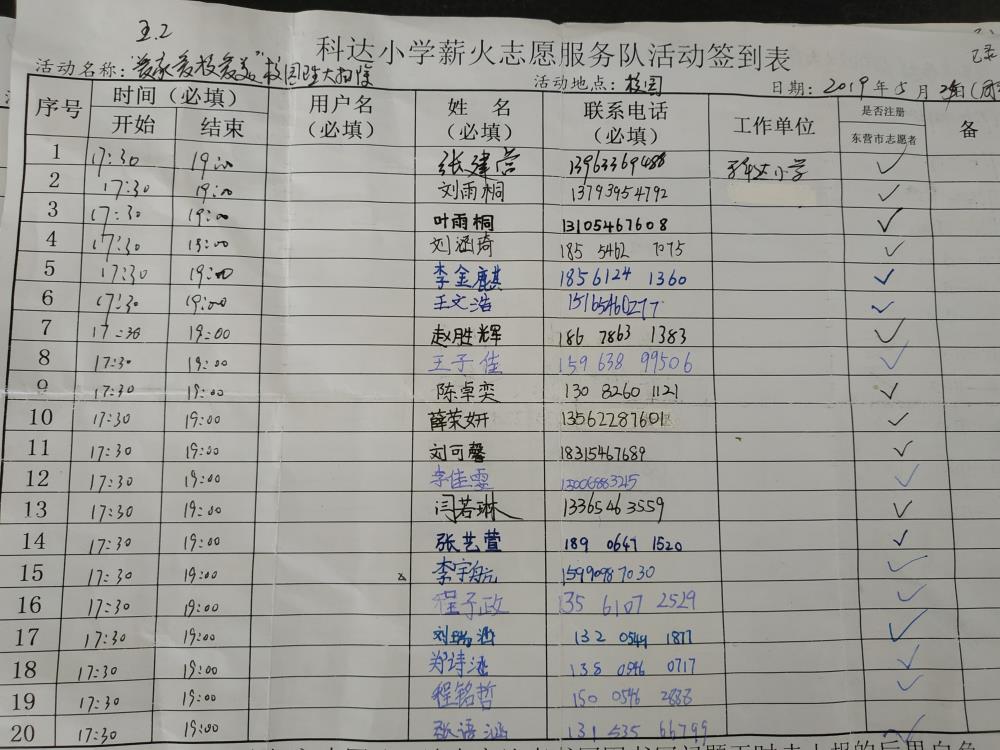 五.2
科达小学薪火志愿服务队活动签到表
活动名称：“爱家爱校爱美”校园卫生大扫除 活动地点：校园 日期：2019年5月
序号 时间（必填） 用户名（必填） 姓名（必填） 联系电话（必填） 工作单位 是否注册东营市志愿者 备
开始 结束
1 17:30 19:00 张建营 13963369488 科达小学 ✓
2 17:30 19:00 刘雨桐 13793954792 ✓
3 17:30 19:00 叶雨桐 13105467608 ✓
4 17:30 19:00 刘涵琦 185 5462 7075 ✓
5 17:30 19:00 李金麒 1856124 1360 ✓
6 17:30 19:00 王文浩 15165460277 ✓
7 17:30 19:00 赵胜辉 186 7863 1383 ✓
8 17:30 19:00 王子佳 159 638 99506 ✓
9 17:30 19:00 陈卓奕 130 8260 1121 ✓
10 17:30 19:00 薛荣妍 13562287601 ✓
11 17:30 19:00 刘可馨 18315467689 ✓
12 17:30 19:00 李佳雯 13006883215 ✓
13 17:30 19:00 闫若琳 1336546 3559 ✓
14 17:30 19:00 张艺萱 189 0647 1520 ✓
15 17:30 19:00 李宇航 1599098 7030 ✓
16 17:30 19:00 程子政 135 6107 2529 ✓
17 17:30 19:00 刘瑞涵 132 0549 1877 ✓
18 17:30 19:00 郑诗涵 138 0546 0717 ✓
19 17:30 19:00 程铭哲 150 0546 2888 ✓
20 17:30 19:00 张语涵 131 535 66799 ✓